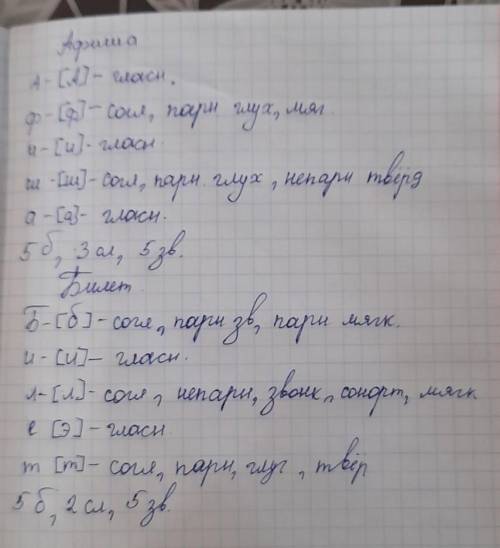 Афиша
А-[А]- гласн.
ф-[ф]- согл, парн глух, мяг
и-[и]- гласн
ш-[ш]- согл, парн. глух, непарн твёрд
а-[а]- гласн.
5б, 3сл, 5зв.
Билет.
Б-[б]- согл, парн зв, парн мягк.
и-[и]- гласн.
л-[л]- согл, непарн, звонк, сонорт, мягк
е [э]- гласн
т [т]- согл, парн, глух, твёр
5б, 2сл, 5зв.